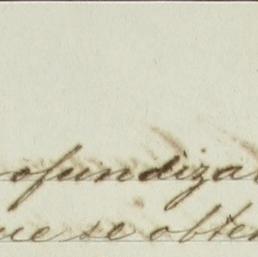 ofundiza
ue se obte